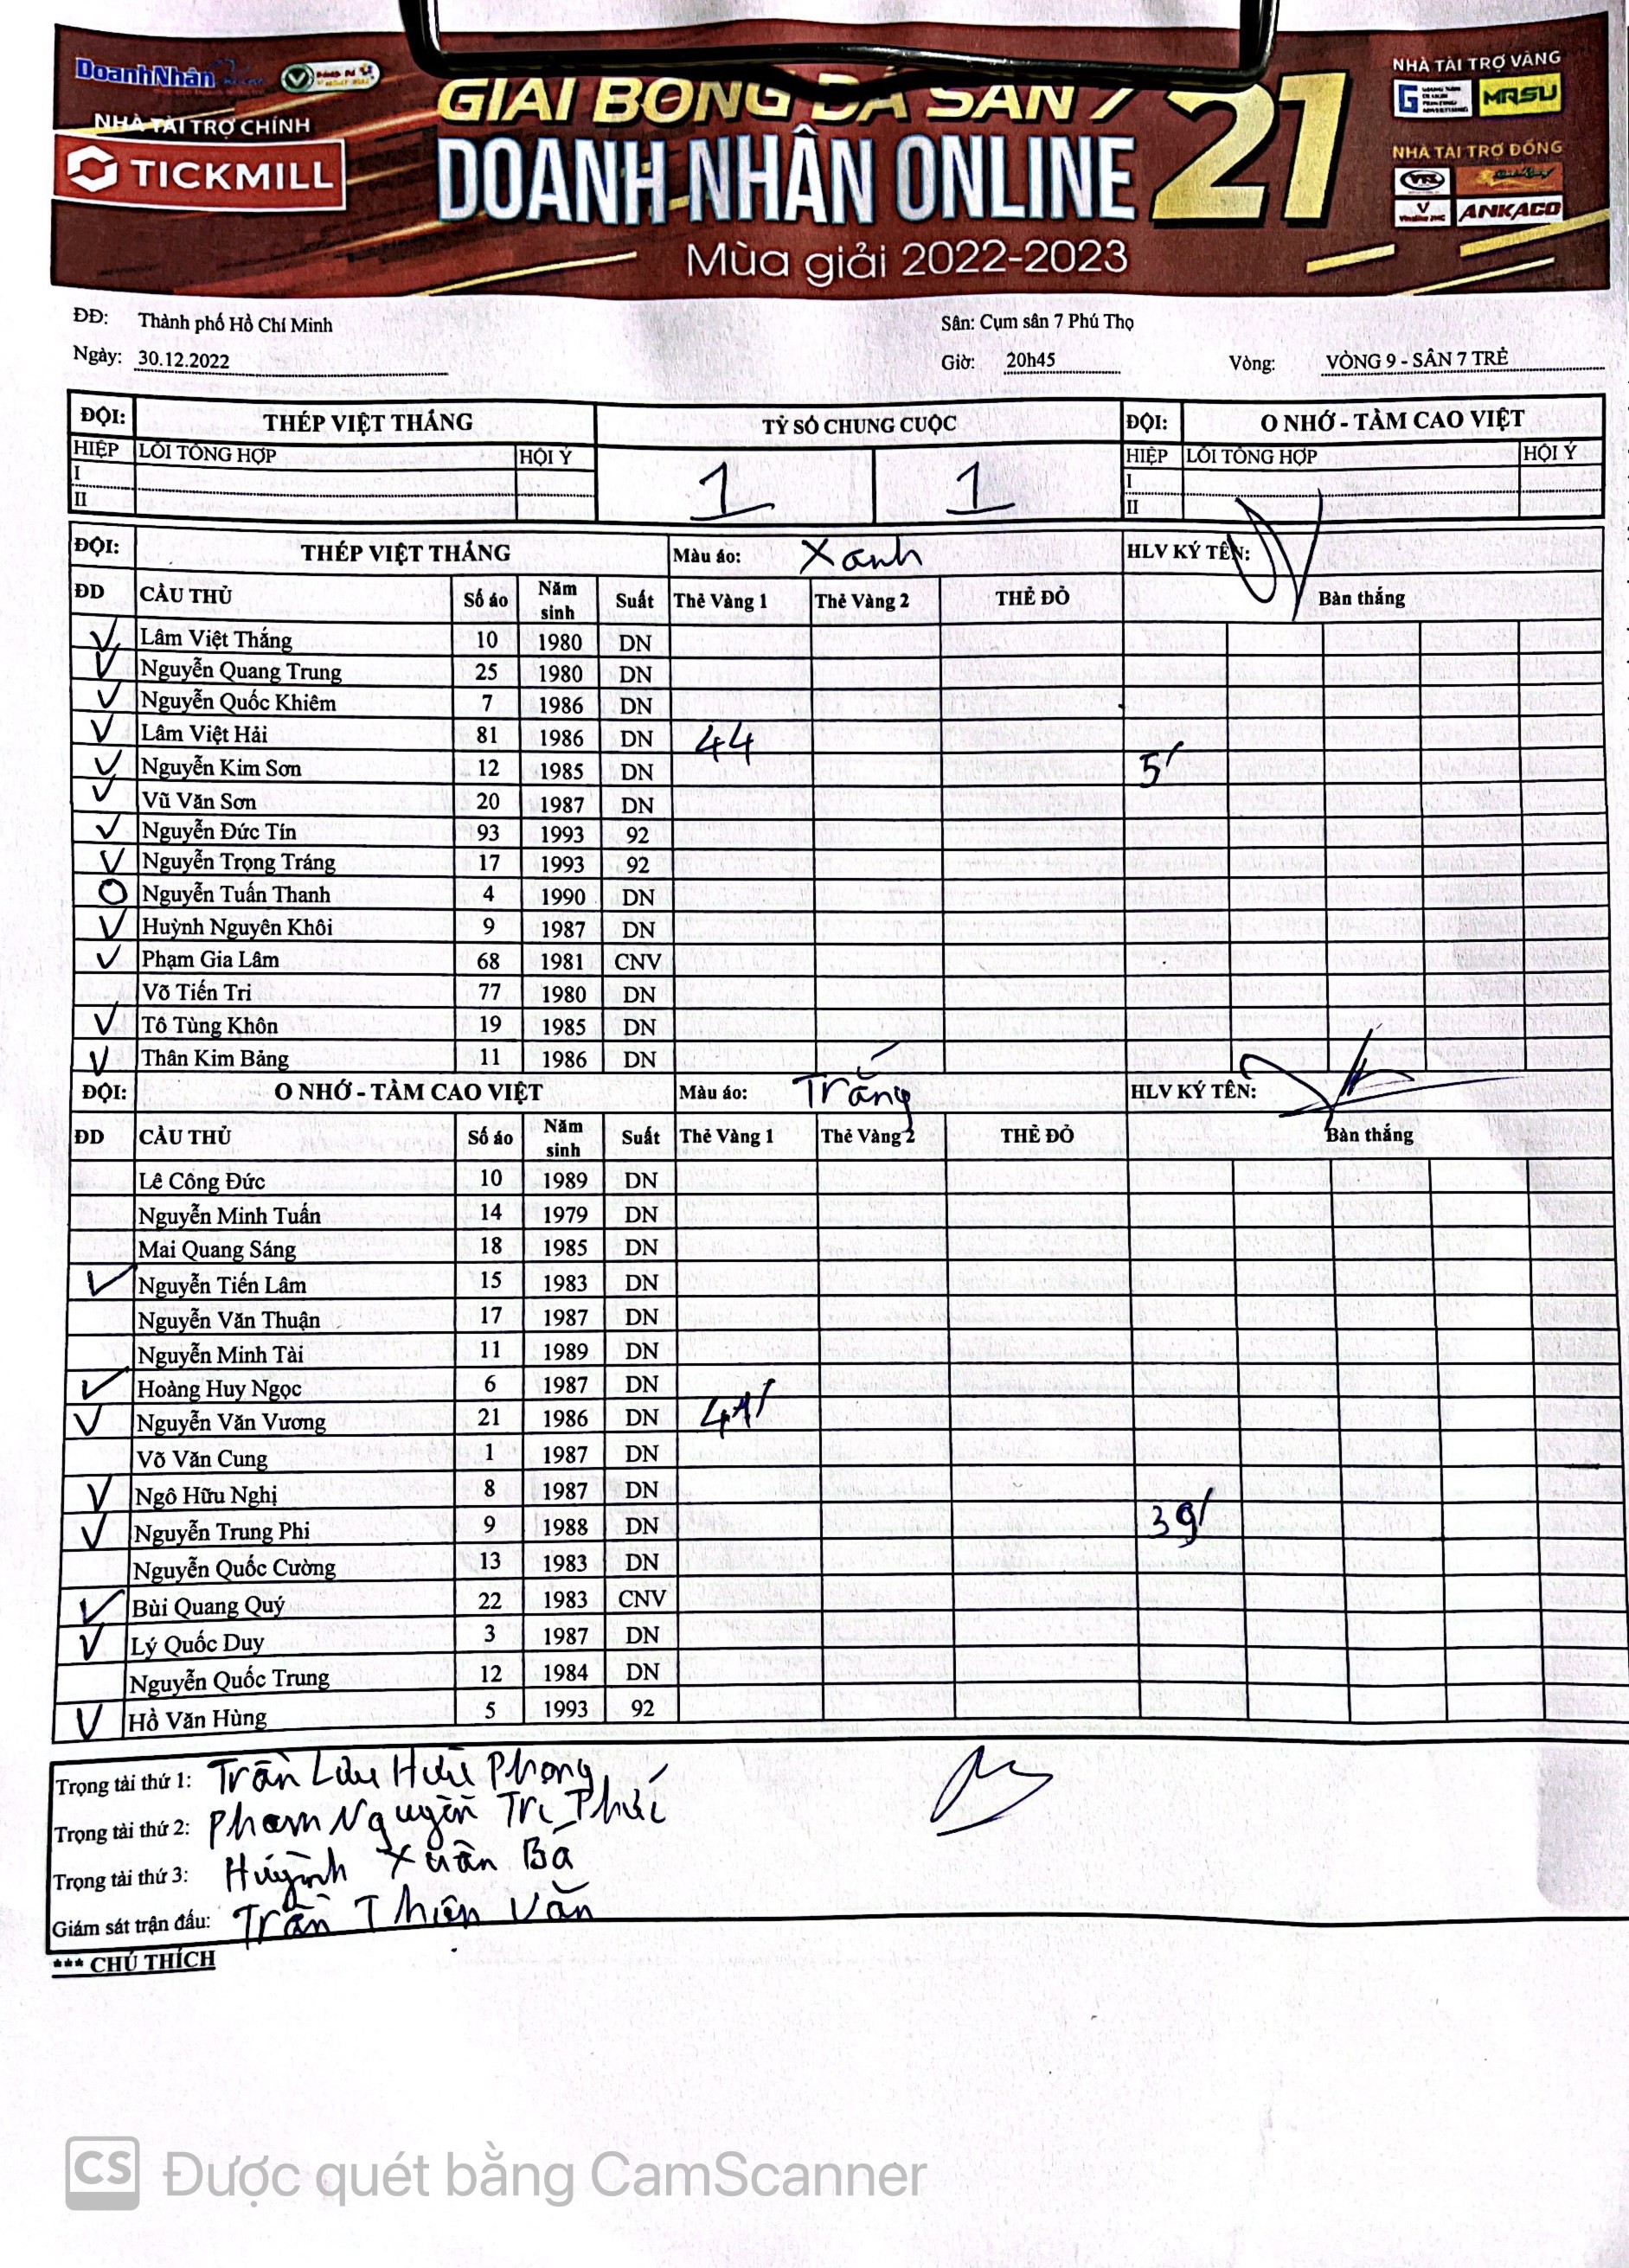 DoanhNhân
NHÀ TÀI TRỢ CHÍNH
TICKMILL
GIẢI BÓNG ĐÁ SÂN 7
DOANH NHÂN ONLINE 21
Mùa giải 2022-2023
NHÀ TÀI TRỢ VÀNG
MRSU
NHÀ TÀI TRỢ ĐỒNG
ANKACO
ĐĐ: Thành phố Hồ Chí Minh Sân: Cụm sân 7 Phú Thọ
Ngày: 30.12.2022 Giờ: 20h45 Vòng: VÒNG 9 - SÂN 7 TRẺ
ĐỘI: THÉP VIỆT THẮNG TỶ SỐ CHUNG CUỘC ĐỘI: O NHỚ - TẦM CAO VIỆT
HIỆP LỖI TỔNG HỢP HỘI Ý 1 1 HIỆP LỖI TỔNG HỢP HỘI Ý
I I
II II
ĐỘI: THÉP VIỆT THẮNG Màu áo: Xanh HLV KÝ TÊN:
ĐD CẦU THỦ Số áo Năm sinh Suất Thẻ Vàng 1 Thẻ Vàng 2 THẺ ĐỎ Bàn thắng
V Lâm Việt Thắng 10 1980 DN
V Nguyễn Quang Trung 25 1980 DN
V Nguyễn Quốc Khiêm 7 1986 DN
V Lâm Việt Hải 81 1986 DN 44
V Nguyễn Kim Sơn 12 1985 DN 5'
V Vũ Văn Sơn 20 1987 DN
V Nguyễn Đức Tín 93 1993 92
V Nguyễn Trọng Tráng 17 1993 92
O Nguyễn Tuấn Thanh 4 1990 DN
V Huỳnh Nguyên Khôi 9 1987 DN
V Phạm Gia Lâm 68 1981 CNV
Võ Tiến Tri 77 1980 DN
V Tô Tùng Khôn 19 1985 DN
V Thân Kim Bảng 11 1986 DN
ĐỘI: O NHỚ - TẦM CAO VIỆT Màu áo: Trắng HLV KÝ TÊN:
ĐD CẦU THỦ Số áo Năm sinh Suất Thẻ Vàng 1 Thẻ Vàng 2 THẺ ĐỎ Bàn thắng
Lê Công Đức 10 1989 DN
Nguyễn Minh Tuấn 14 1979 DN
Mai Quang Sáng 18 1985 DN
V Nguyễn Tiến Lâm 15 1983 DN
Nguyễn Văn Thuận 17 1987 DN
Nguyễn Minh Tài 11 1989 DN
V Hoàng Huy Ngọc 6 1987 DN
V Nguyễn Văn Vương 21 1986 DN 41'
Võ Văn Cung 1 1987 DN
V Ngô Hữu Nghị 8 1987 DN
V Nguyễn Trung Phi 9 1988 DN 39'
Nguyễn Quốc Cường 13 1983 DN
V Bùi Quang Quý 22 1983 CNV
V Lý Quốc Duy 3 1987 DN
Nguyễn Quốc Trung 12 1984 DN
V Hồ Văn Hùng 5 1993 92
Trọng tài thứ 1: Trần Lưu Hữu Phong
Trọng tài thứ 2: Phạm Nguyễn Trí Phúc
Trọng tài thứ 3: Huỳnh Xuân Bá
Giám sát trận đấu: Trần Thiện Văn
*** CHÚ THÍCH
CS Được quét bằng CamScanner